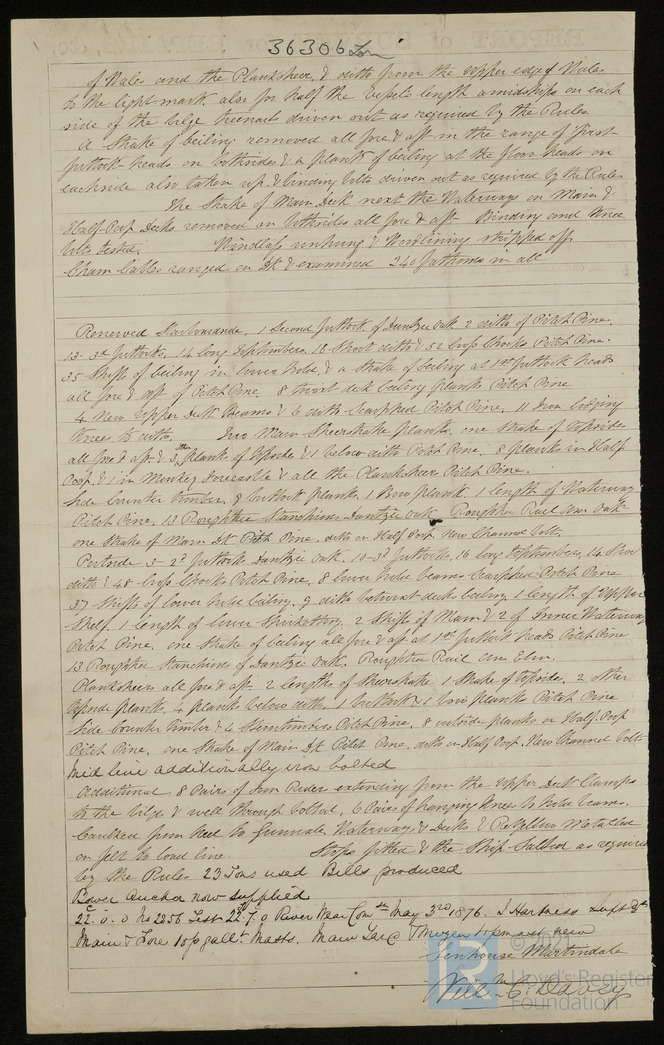 36306 Lon
of Wales and the Planksheer, & ditto from the upper edge of Wales
to the light mark, also for half the Vessel's length amidships on each
side of the bilge treenails driven out as required by the Rules.
A Strake of Ceiling removed all fore & aft in the range of first
futtock heads on bothsides & a plank of Ceiling at the floor heads on
eachside also taken up, & binding bolts driven out as required by the Rules
The Strake of Main Deck next the Waterways on Main &
Half Poop Decks removed on bothsides all fore & aft Binding and Knee
bolts tested. Windlass unhung & Windlining stripped off
Chain Cables ranged on Dk & examined 240 fathoms in all
Renewed Starboardside, 1 Second futtock of Dantzic Oak 2 ditto of Pitch Pine.
13 3rd futtocks, 14 long Toptimbers, 18 Short ditto & 52 Cross Chocks Pitch Pine.
35 Shifts of Ceiling in lower hold, & a Strake of Ceiling at 1st futtock heads
all fore & aft of Pitch Pine. 8 twixt deck Ceiling planks Pitch Pine
4 New Upper Deck Beams & 6 ditto Scarphed Pitch Pine, 11 Iron Lodging
Knees to ditto. Two Main Sheerstrake planks, one Strake of Topsides
all fore & aft, & 3 planks of Topside & 1 below ditto Pitch Pine. 8 planks in Half
Poop, & 1 in Monkey Forecastle & all the Planksheer Pitch Pine.
Side Counter timber, 8 buttock planks, 1 Bow plank, 1 length of Waterway
Pitch Pine, 13 Roughtree Stanchions Dantzic Oak, Roughtree Rail Am Oak
one Strake of Main Dk Pitch Pine, ditto on Half Poop, New Channel bolts.
Portside 3 2d futtocks Dantzic Oak, 10 3d futtocks, 16 long Toptimbers, 14 Short
ditto & 48 Cross Chocks Pitch Pine, 8 lower hold beams Scarphed Pitch Pine
37 Shifts of lower hold Ceiling, 9 ditto betwixt decks Ceiling, 1 length of Upper
Shelf, 1 length of lower Spirketting, 2 Shifts of Main & 2 of Inner Waterway
Pitch Pine, one Strake of Ceiling all fore & aft at 1st futtock heads Pitch Pine
13 Roughtree Stanchions of Dantzic Oak, Roughtree Rail Am Elm.
Planksheers all fore & aft 2 lengths of Sheerstrake, 1 Strake of Topside, 2 other
Topside planks, 4 planks below ditto, 1 buttock & 1 bow planks Pitch Pine
Side Counter timber & 4 Sterntimbers Pitch Pine, 8 outside planks on Half Poop
Pitch Pine, one Strake of Main Dk Pitch Pine, ditto on Half Poop, New Channel bolts
Mid line additionally iron bolted
Additional 8 Pairs of Iron Riders extending from the Upper Deck Clamps
to the bilge & well through bolted, 6 Pairs of hanging Knees to Hold beams.
Caulked from Keel to Gunwale, Waterways & Decks & Re Yellow Metalled
on felt to load line. Stops fitted & the Ship Salted as required
by the Rules 23 Tons used Bills produced
Bower Anchor now supplied
22.0.0 No 2856 Test 22.7.0 River Wear Comrs May 3rd 1876. J Hartness Supt
Main & Fore top gallt Masts. Main Yard & Mizen topmast new
Senhouse Martindale
Willm C. Davey
© 2021
Lloyd's Register
Foundation